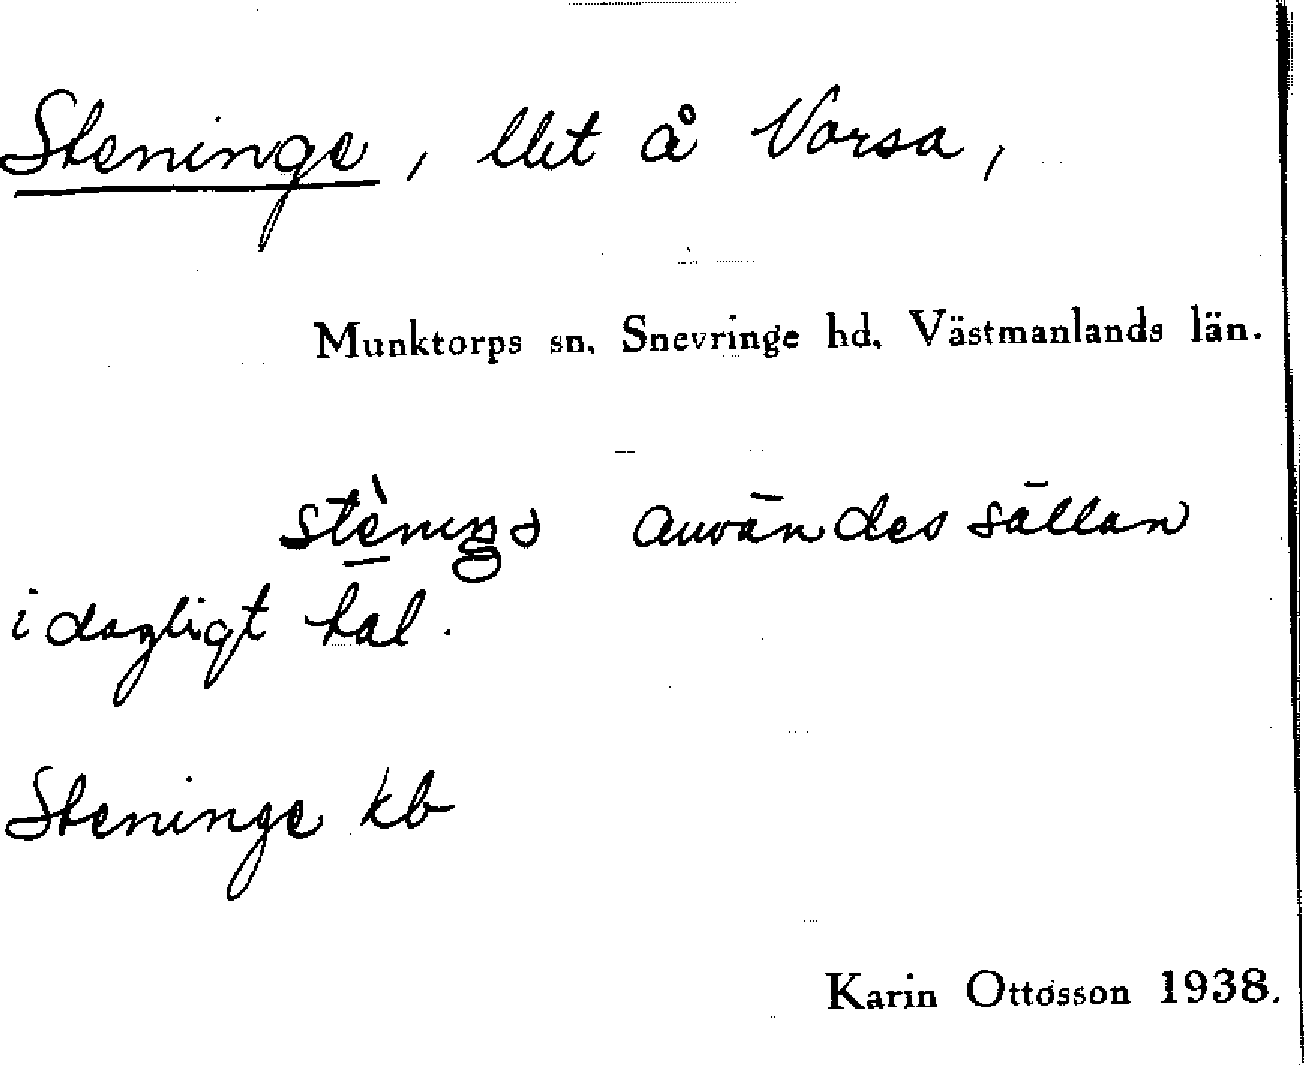 Steninge, llet å Vorsa,
Munktorps sn. Snevringe hd. Västmanlands län.
användes sällan
i dagligt tal.
Steninge kb
Karin Ottosson 1938.